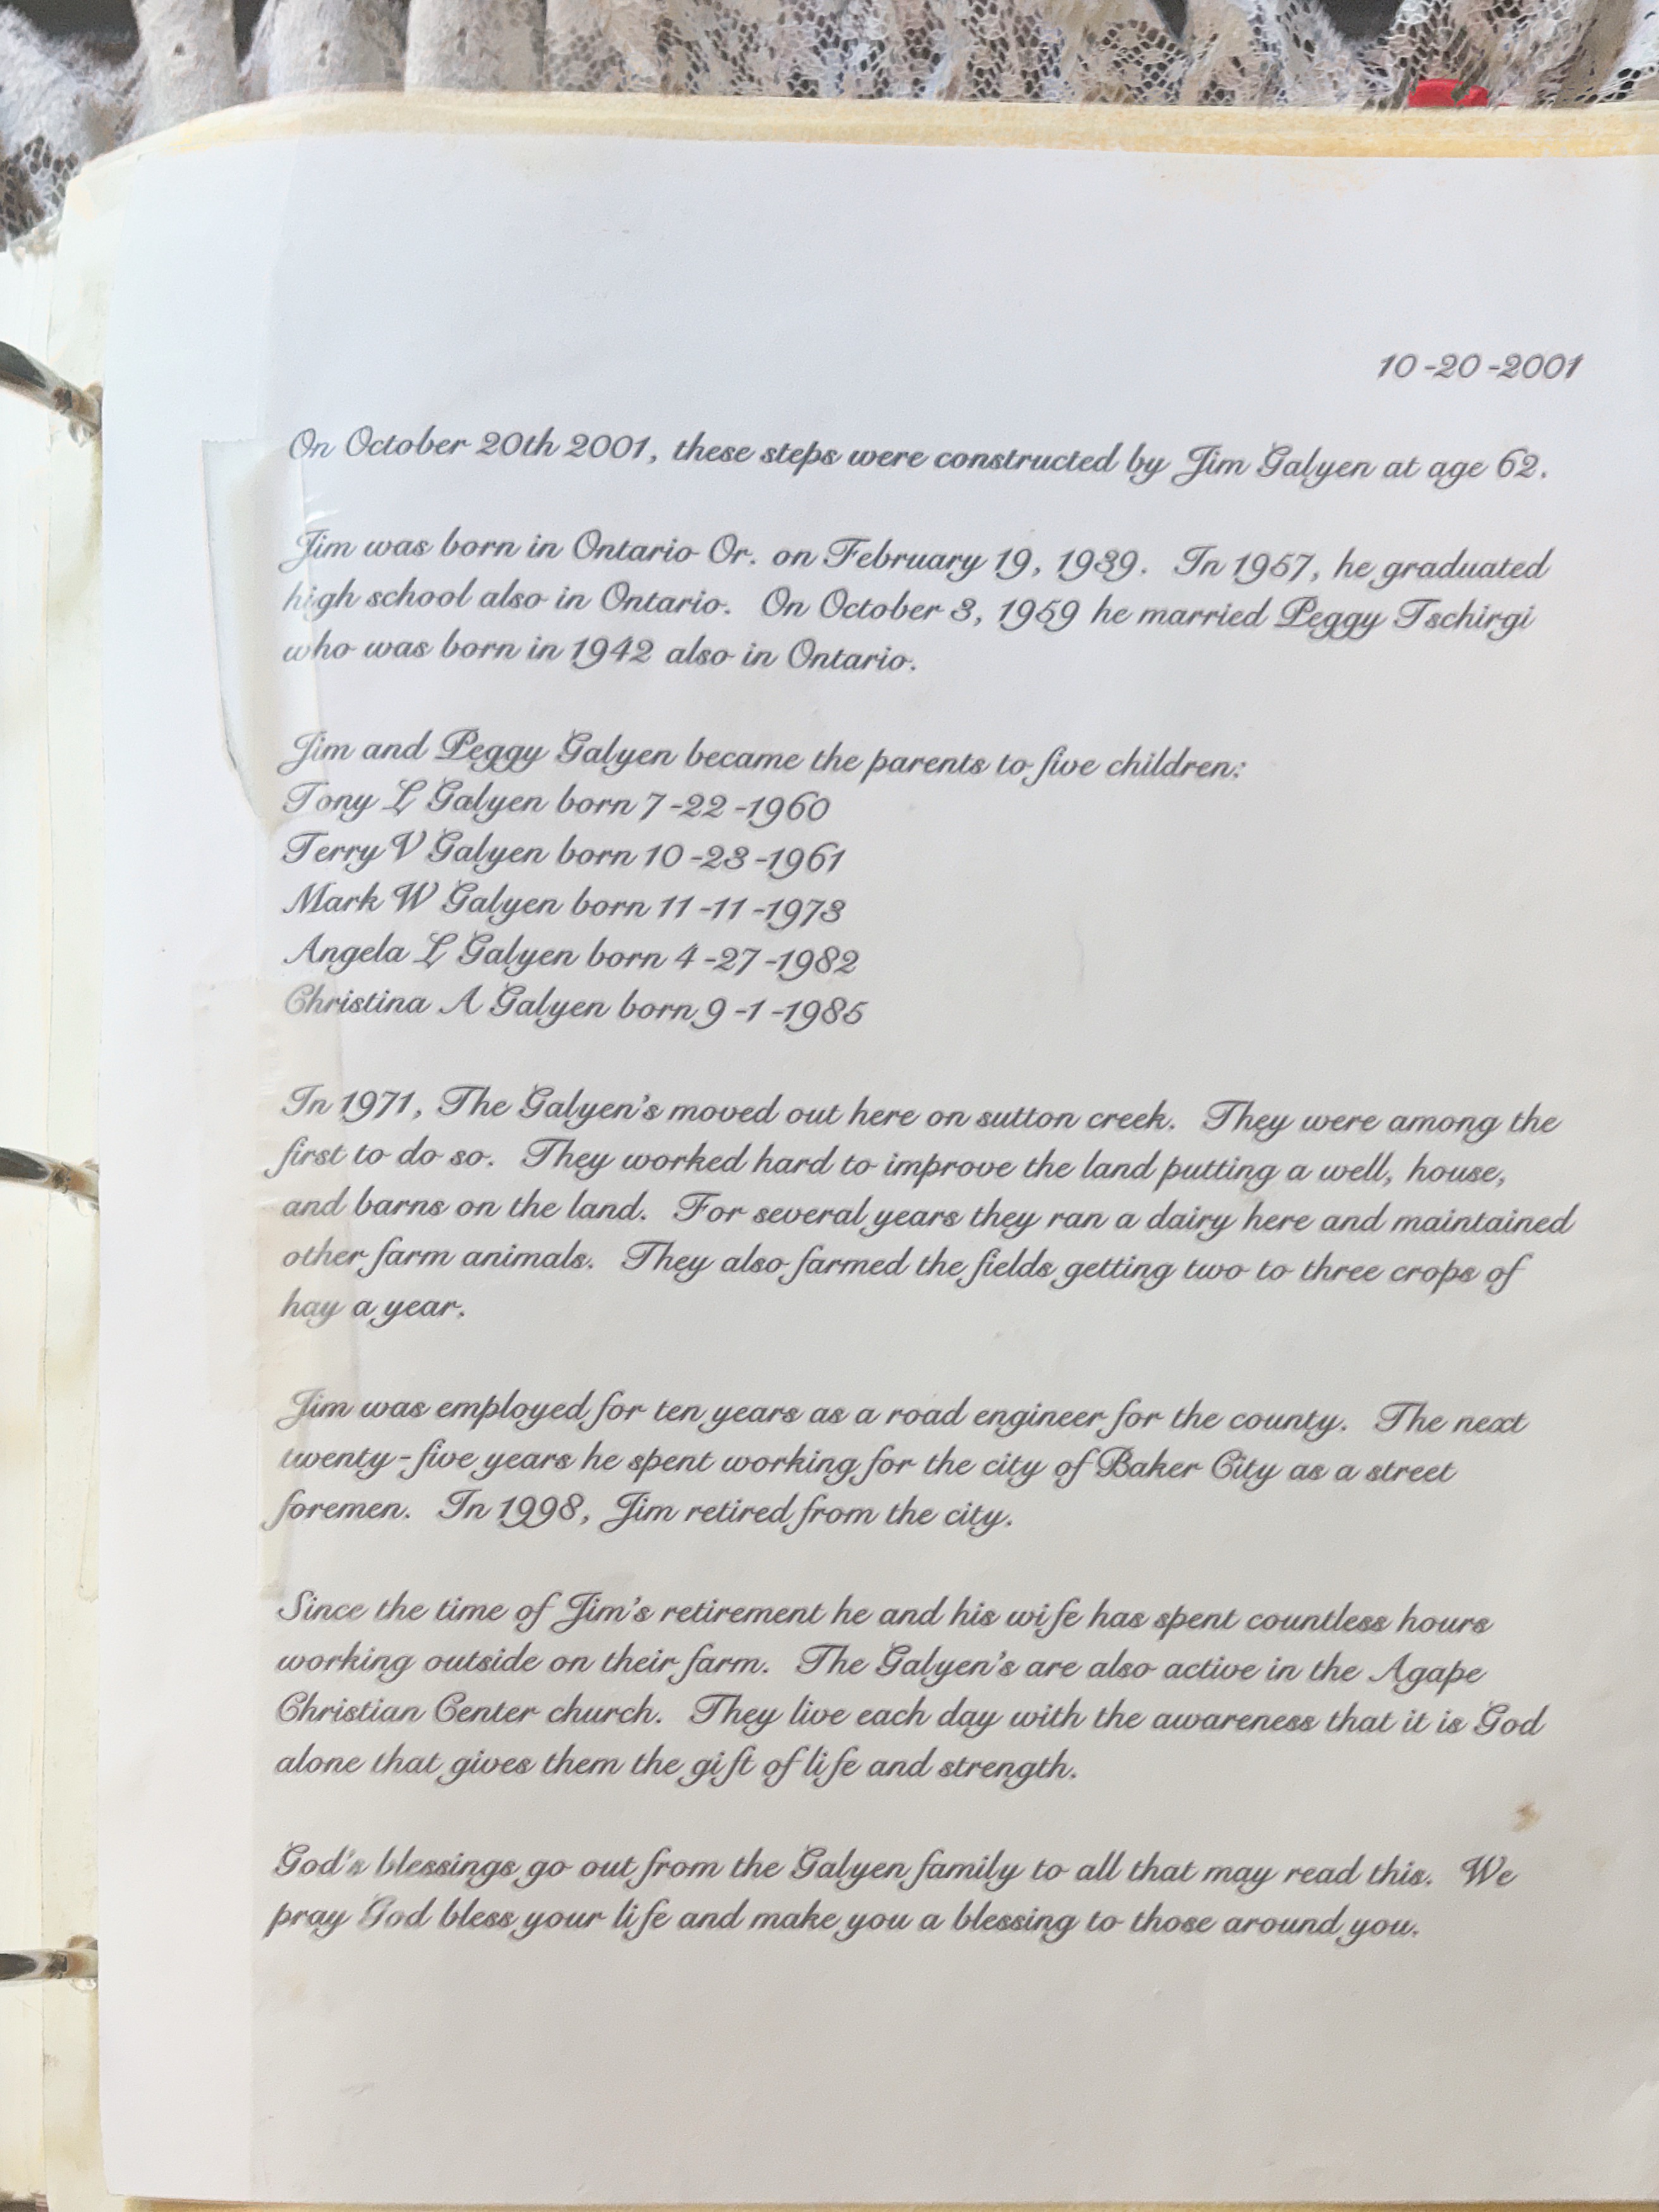 10-20-2001
On October 20th 2001, these steps were constructed by Jim Galyen at age 62.
Jim was born in Ontario Or. on February 19, 1939. In 1957, he graduated
high school also in Ontario. On October 3, 1959 he married Peggy Tschirgi
who was born in 1942 also in Ontario.
Jim and Peggy Galyen became the parents to five children:
Tony L Galyen born 7-22-1960
Terry V Galyen born 10-23-1961
Mark W Galyen born 11-11-1973
Angela L Galyen born 4-27-1982
Christina A Galyen born 9-1-1985
In 1971, The Galyen's moved out here on sutton creek. They were among the
first to do so. They worked hard to improve the land putting a well, house,
and barns on the land. For several years they ran a dairy here and maintained
other farm animals. They also farmed the fields getting two to three crops of
hay a year.
Jim was employed for ten years as a road engineer for the county. The next
twenty-five years he spent working for the city of Baker City as a street
foremen. In 1998, Jim retired from the city.
Since the time of Jim's retirement he and his wife has spent countless hours
working outside on their farm. The Galyen's are also active in the Agape
Christian Center church. They live each day with the awareness that it is God
alone that gives them the gift of life and strength.
God's blessings go out from the Galyen family to all that may read this. We
pray God bless your life and make you a blessing to those around you.